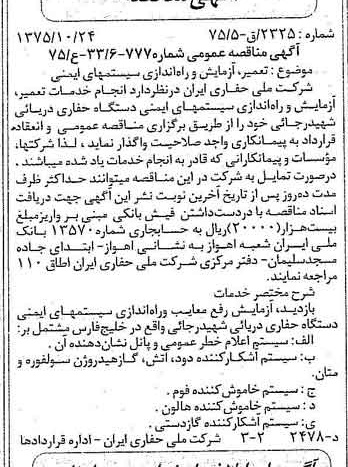 شماره : ۲۳۲۵/ق-۷۵/۵ ۱۳۷۵/۱۰/۲۴
آگهی مناقصه عمومی شماره ۷۷۷-۳۳/۶-ع/۷۵
موضوع : تعمیر، آزمایش و راه‌اندازی سیستمهای ایمنی
شرکت ملی حفاری ایران درنظردارد انجام خدمات تعمیر،
آزمایش و راه‌اندازی سیستمهای ایمنی دستگاه حفاری دریائی
شهیدرجائی خود را از طریق برگزاری مناقصه عمومی و انعقاد
قرارداد به پیمانکاری واجد صلاحیت واگذار نماید ، لذا شرکتها،
مؤسسات و پیمانکارانی که قادر به انجام خدمات یاد شده میباشند .
درصورت تمایل به شرکت در این مناقصه میتوانند حداکثر ظرف
مدت ده‌روز پس از تاریخ آخرین نوبت نشر این آگهی جهت دریافت
اسناد مناقصه با دردست‌داشتن فیش بانکی مبنی بر واریزمبلغ
بیست‌هزار(۲۰۰۰۰)ریال به حسابجاری شماره ۱۳۵۷۰ بانک
ملی ایران شعبه اهواز به نشانی اهواز- ابتدای جاده
مسجدسلیمان- دفتر مرکزی شرکت ملی حفاری ایران اطاق ۱۱۰
مراجعه نمایند.
شرح مختصر خدمات
بازدید، آزمایش رفع معایب وراه‌اندازی سیستمهای ایمنی
دستگاه حفاری دریائی شهیدرجائی واقع در خلیج‌فارس مشتمل بر:
الف: سیستم اعلام خطر عمومی و پانل نشان‌دهنده آن .
ب: سیستم آشکارکننده دود، آتش، گازهیدروژن سولفوره و
متان.
ج : سیستم خاموش‌کننده فوم .
د : سیستم خاموش‌کننده هالون .
ی: سیستم آشکارکننده گازدستی .
د-۲۴۷۸ ۲-۳ شرکت ملی حفاری ایران - اداره قراردادها